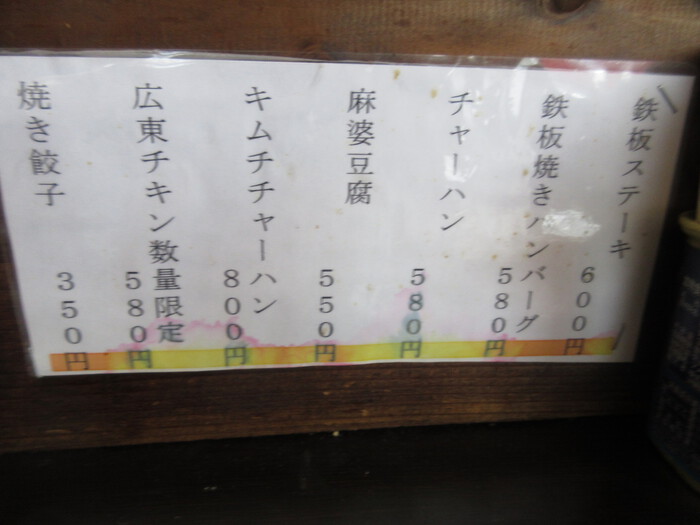 鉄板ステーキ
600円
鉄板焼きハンバーグ
580円
チャーハン
580円
麻婆豆腐
550円
キムチチャーハン
800円
広東チキン数量限定
580円
焼き餃子
350円